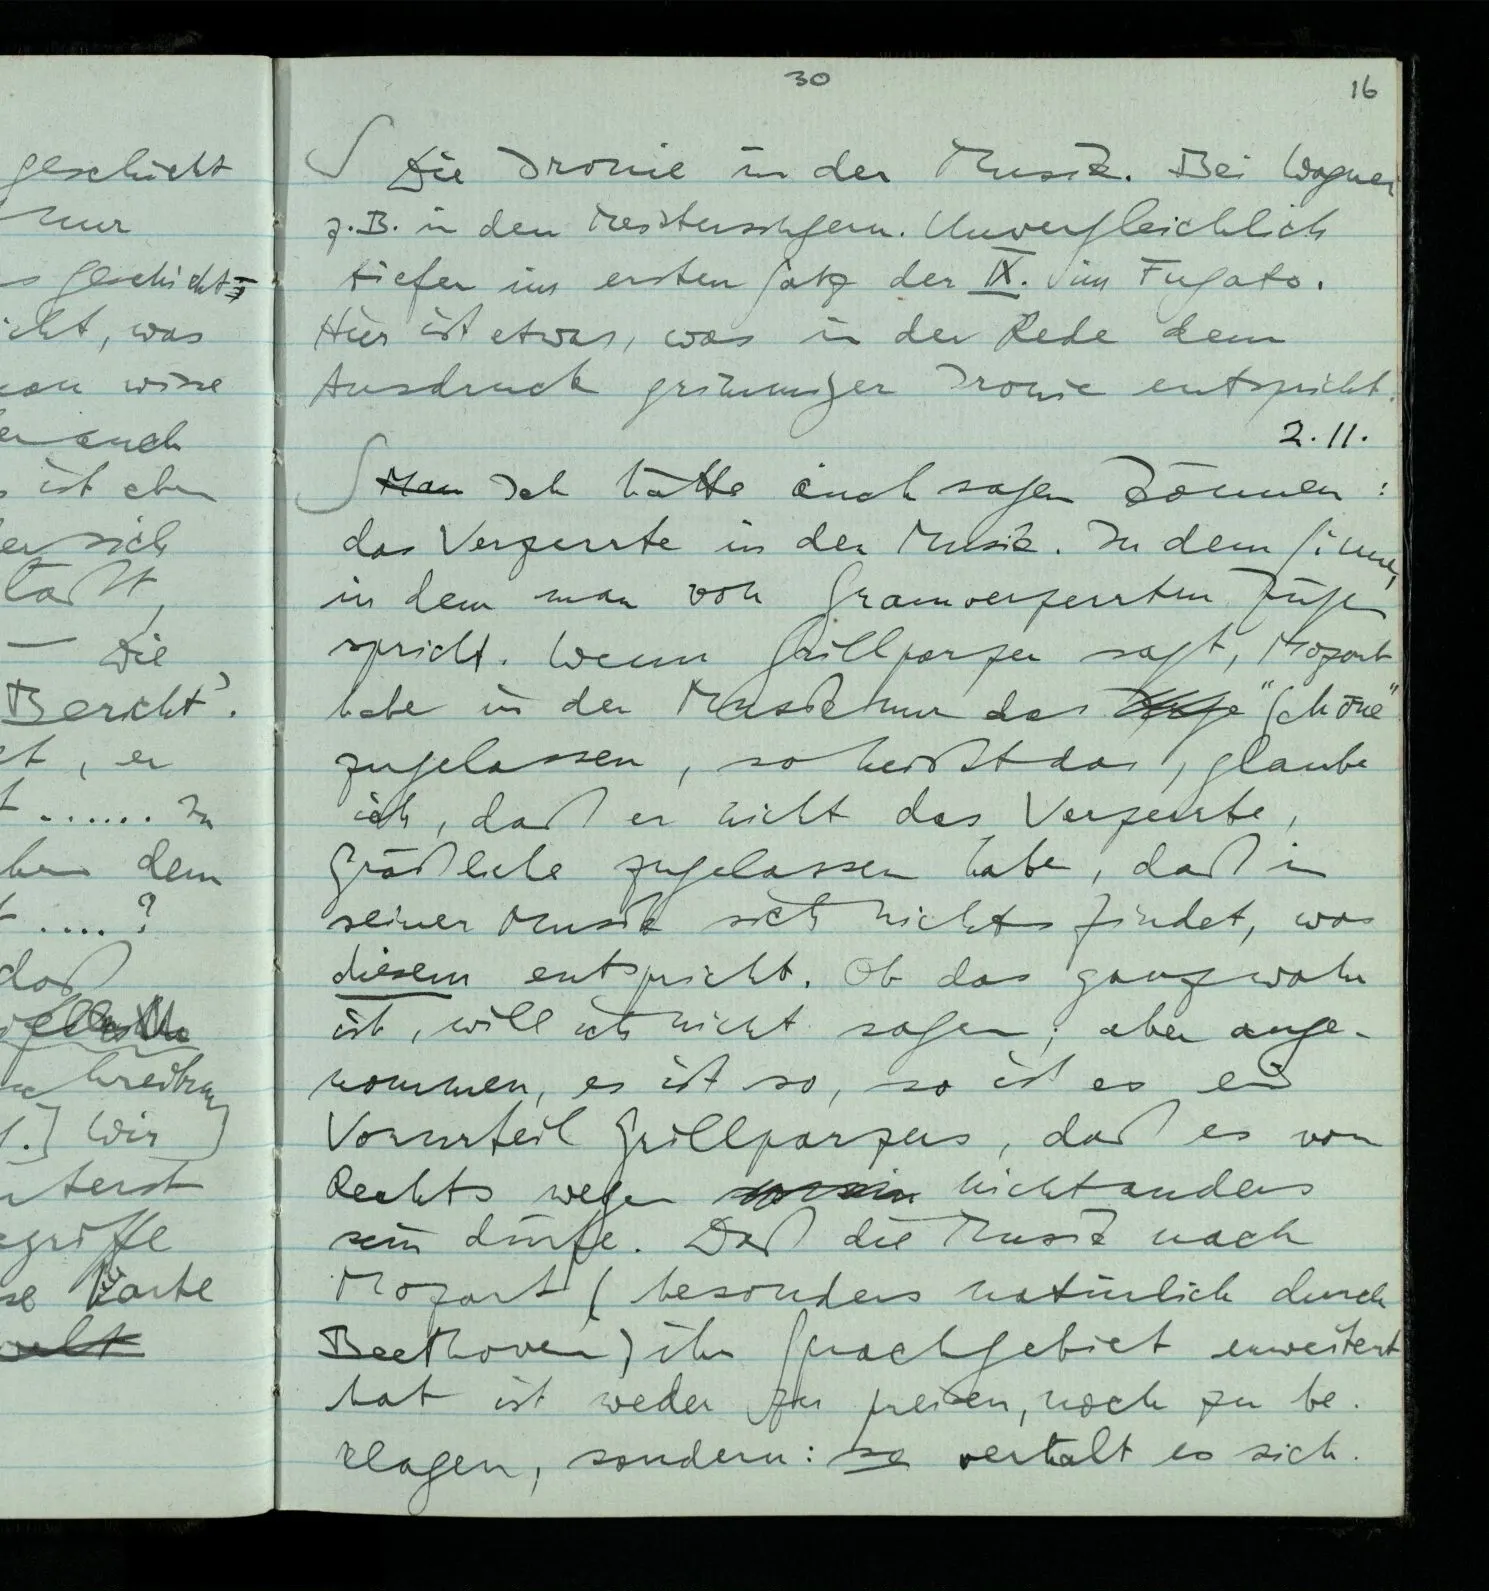 geschieht
nur
geschieht
was
wisse
auch
ist eben
sich
— Die
Bericht'.
, er
...... In
dem
.... ?
daß
Wir
Worte
30
16
∫ Die Ironie in der Musik. Bei Wagner
z.B. in den Meistersingern. Unvergleichlich
tiefer im ersten Satz der IX. im Fugato.
Hier ist etwas, was in der Rede dem
Ausdruck grimmiger Ironie entspricht.
2.11.
∫ Man Ich hätte auch sagen können :
das Verzerrte in der Musik. In dem Sinne,
in dem man von gramverzerrten Zügen
spricht. Wenn Grillparzer sagt, Mozart
habe in der Musik nur das "Schöne"
zugelassen, so heißt das, glaube
ich, daß er nicht das Verzerrte,
Gräßliche zugelassen habe, daß in
seiner Musik sich nichts findet, was
diesem entspricht. Ob das ganz wahr
ist, will ich nicht sagen; aber ange-
nommen, es ist so, so ist es ein
Vorurteil Grillparzers, daß es von
Rechts wegen nicht anders
sein dürfe. Daß die Musik nach
Mozart (besonders natürlich durch
Beethoven) ihr Sprachgebiet erweitert
hat ist weder zu preisen, noch zu be-
klagen, sondern: so verhält es sich.